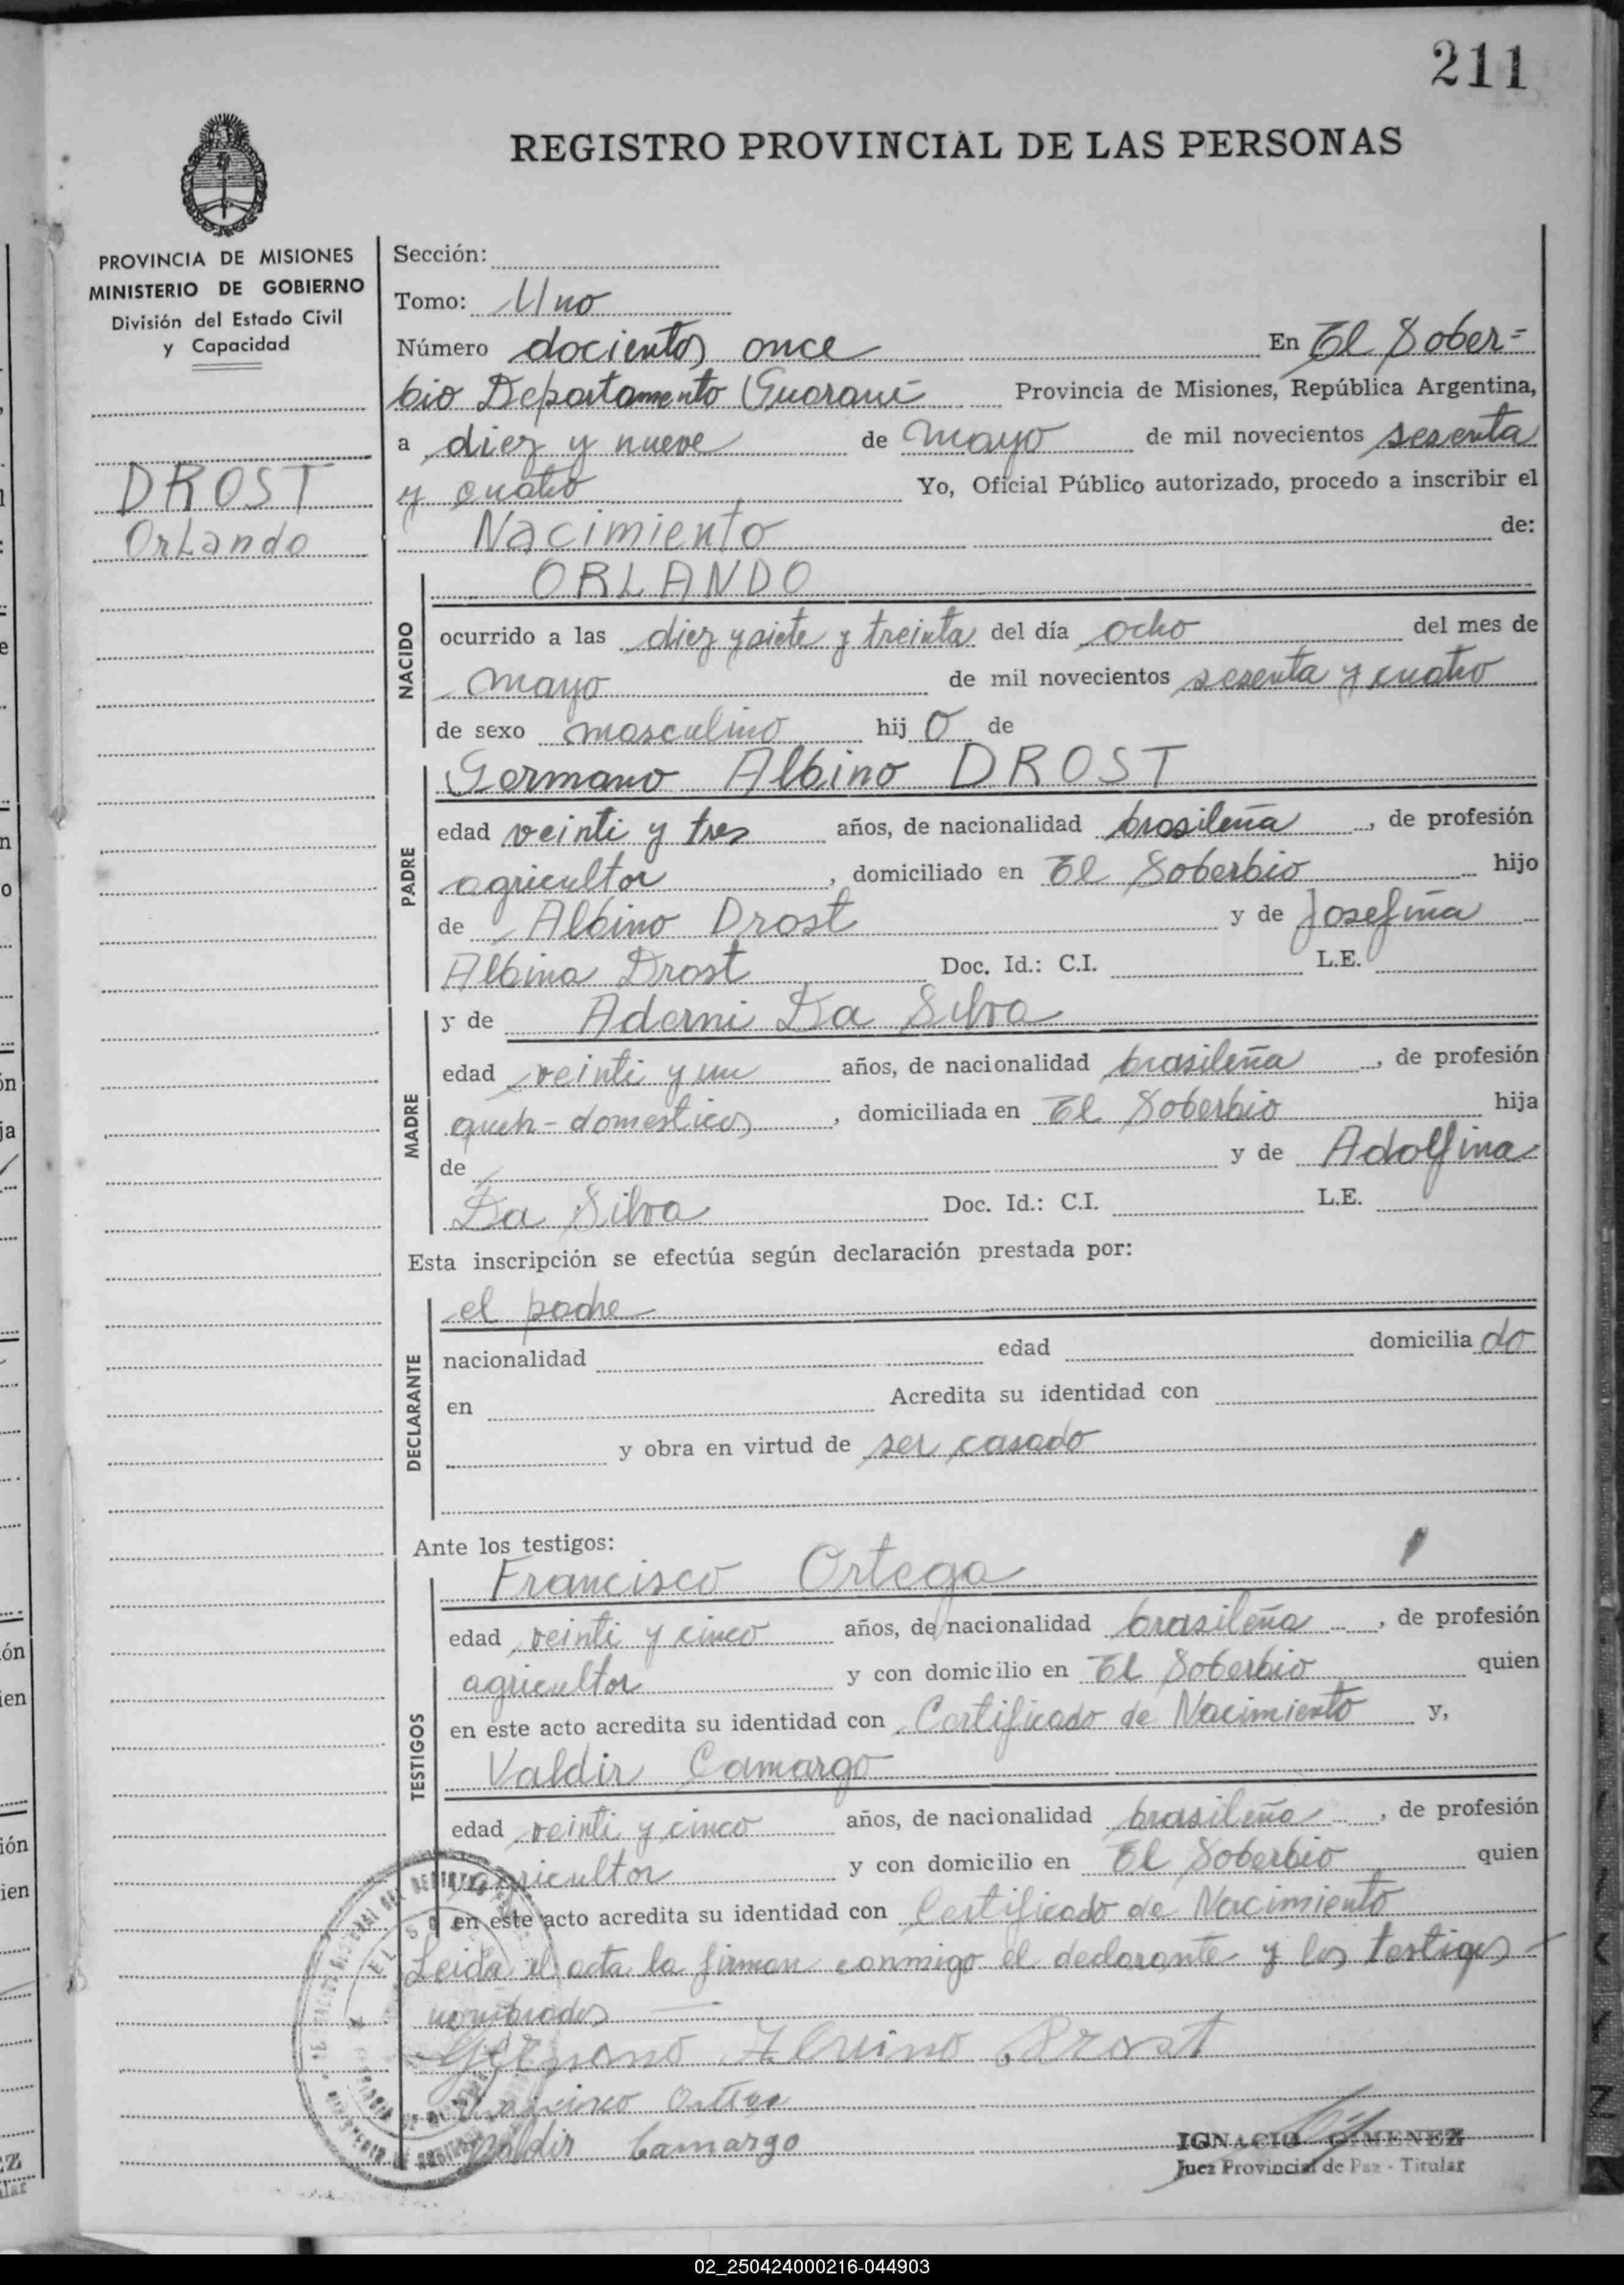 211
REGISTRO PROVINCIAL DE LAS PERSONAS
PROVINCIA DE MISIONES
MINISTERIO DE GOBIERNO
División del Estado Civil
y Capacidad
DROST
Orlando
Sección:
Tomo: Uno
Número docientos once En El Sober=
bio Departamento Guaraní Provincia de Misiones, República Argentina,
a diez y nueve de mayo de mil novecientos sesenta
y cuatro Yo, Oficial Público autorizado, procedo a inscribir el
Nacimiento de:
NACIDO
ORLANDO
ocurrido a las diez y siete y treinta del día ocho del mes de
mayo de mil novecientos sesenta y cuatro
de sexo masculino hij o de
PADRE
Germano Albino DROST
edad veinti y tres años, de nacionalidad brasileña, de profesión
agricultor, domiciliado en El Soberbio hijo
de Albino Drost y de Josefina
Albina Drost Doc. Id.: C.I. L.E.
MADRE
y de Aderni Da Silva
edad veinti y un años, de nacionalidad brasileña, de profesión
queh-domesticos, domiciliada en El Soberbio hija
de y de Adolfina
Da Silva Doc. Id.: C.I. L.E.
Esta inscripción se efectúa según declaración prestada por:
DECLARANTE
el padre
nacionalidad edad domicilia do
en Acredita su identidad con
y obra en virtud de ser casado
Ante los testigos:
TESTIGOS
Francisco Ortega
edad veinti y cinco años, de nacionalidad brasileña, de profesión
agricultor y con domicilio en El Soberbio quien
en este acto acredita su identidad con Certificado de Nacimiento y,
Valdir Camargo
edad veinti y cinco años, de nacionalidad brasileña, de profesión
agricultor y con domicilio en El Soberbio quien
en este acto acredita su identidad con Certificado de Nacimiento
Leida el acta la firman conmigo el declarante y los testigos
nombrados
Germano Alvino Drost
Francisco Ortega
Valdir Camargo
IGNACIO GIMENEZ
Juez Provincial de Paz - Titular
02_250424000216-044903